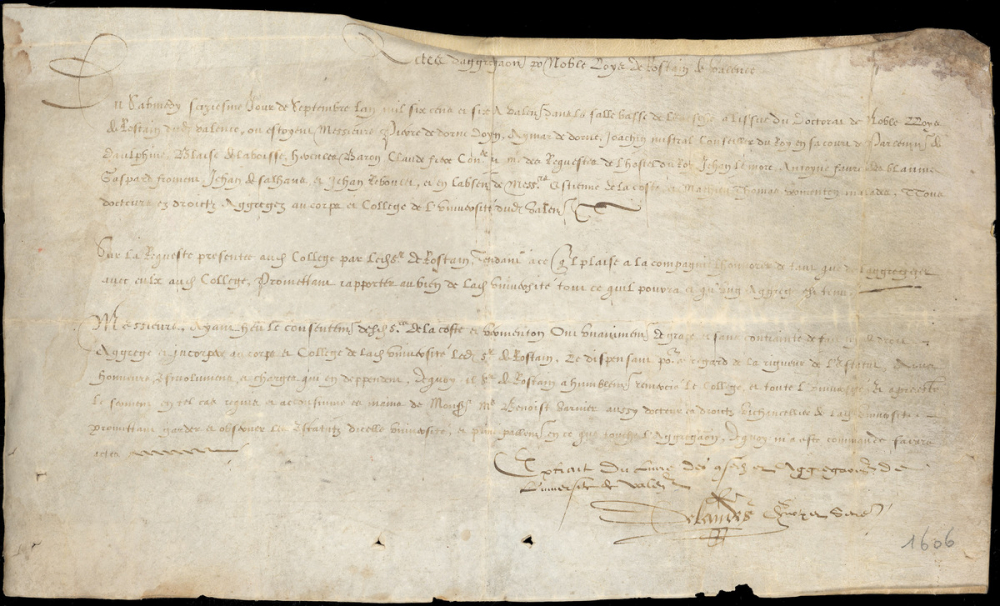 Acte d'aggrega͠on de Noble Loys de Rostain de Valence
Du Sabmedy seziesme Jour de Septembre Lan mil six cens et six A Valence dans la salle basse de a lissue du Doctorat de Noble Loys
de Rostain dudt valence, ou estoyent Messieurs Pierre de dorne Doyn, Aymar de dorne, Joachin mistral Conseiller du Roy en sa cour de parlemt de
Daulphine, Blaise de laboisse, Baron, Claude frere Conr et mr des Requestes de l'hostel du Roy, Jehan Anthoyne faure des blaeins
Gaspard froment, Jehan de salhans, et Jehan Reboulet, et en labsence de Messrs Estienne de la coste et Thomas vermenton malade, Tous
docteurs ez droictz Aggregez au corps et College de L'université dudt Valence
Sur la Requeste presentée audt College par ledt Sr de Rostain, Tendant a ce qu'il plaise a la compagnie l'honnorer de tant que de l'aggreger
avec eulx audt College, Promettant rapporter au bien de ladt université tout ce quil pourra et qu'ung Aggregé est tenu.
Messieurs, Ayant heu le consentemt desdts Srs de la coste et vermenton Ont unanimemt de grace et sans
Aggregé et incorporé au corps et College de ladt université Ledt Sr de Rostain, Le dispensant por regard de la rigueur de l'estatut, Avec
honneurs Esmolumens et charges qui en deppendent, Dequoy il Sr de Rostain a humblemt remercié le College et toute l'université, Et a presté
le serment en tel cas requis et accoustumé es mains de Monsr Mr Benoist aussy docteur ez droictz vichancellier de ladt université
promettant garder et observer les Statutz dicelle université, et principallemt en ce que touche l'Aggrega͠on, Dequoy m'a esté commandé faire
acte
Extrait du livre des et Aggrega͠ons de
L'université de Valence
Delandes Secre
1606